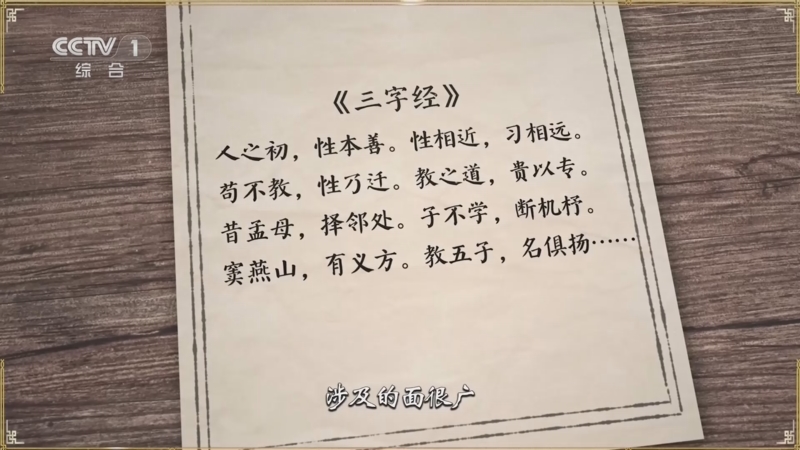 CCTV 1
综合
《三字经》
人之初，性本善。性相近，习相远。
苟不教，性乃迁。教之道，贵以专。
昔孟母，择邻处。子不学，断机杼。
窦燕山，有义方。教五子，名俱扬……
涉及的面很广